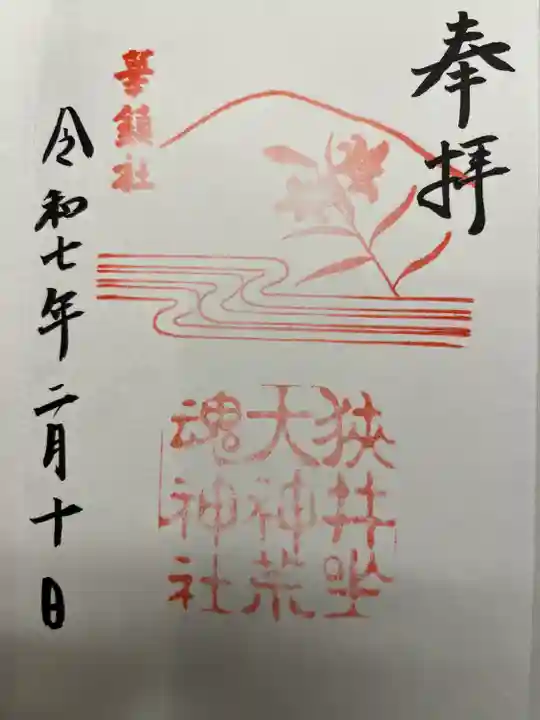 奉拝
狭井坐
大神荒
魂神社
華鎮社
令和七年二月十日